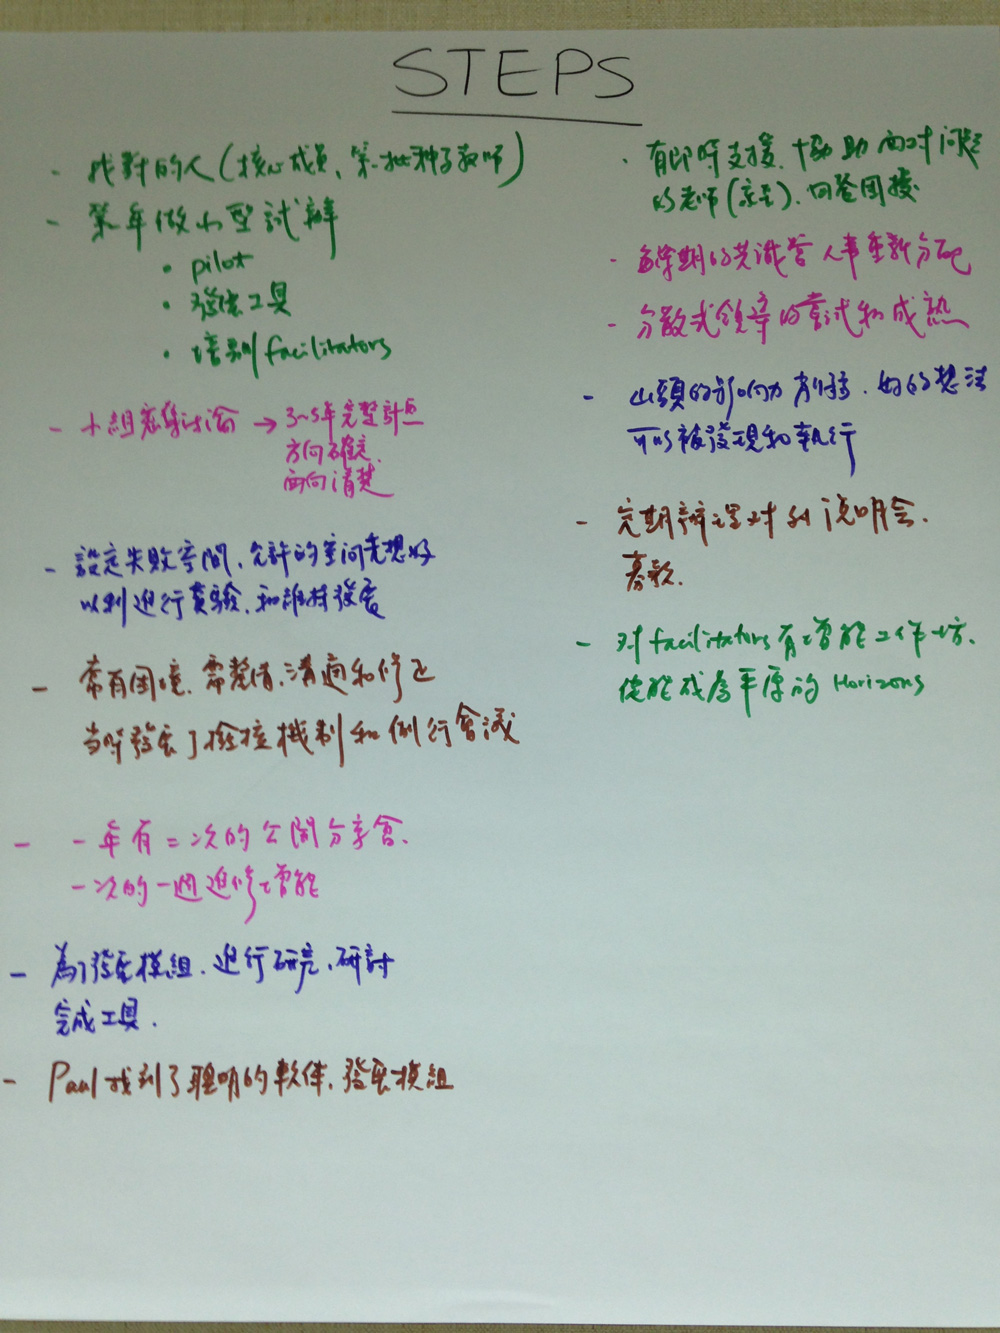 STEPS
- 找對的人(核心成員、第一批種子教師)
- 第一年做小型試辦
• pilot
• 發展工具
• 培訓 facilitators
- 小組密集討論 → 3~5年完整計画
方向確定.
面向清楚
- 設定失敗空間, 允許的空間先想好
以利進行實驗, 和維持發展
- 常有困境, 需整備, 溝通和修正
當時發展了檢核機制和例行會議
- 一年有二次的公開分享會.
一次的一週進修增能
- 為了發展模組, 進行研究, 研討
完成工具.
- Paul找到了聰明的軟体, 發展模組
• 有即時支援, 協助面對问題
的老師
• 每學期的共識營 人事重新分配
- 分散式領導的嘗試和成熟
- 山頭的影响力, 好的想法
可以被發現和執行
- 定期辦理対外说明会.
募款.
- 对facilitators有增能工作坊.
使能成為平原的 Horizons